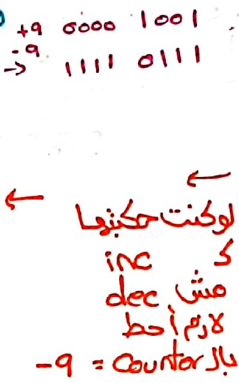 +9 0000 1001
-9
→ 1111 0111
←
← لو كنت حكتبها
ك inc
مش dec
لازم أحط
بالـ Counter = -9